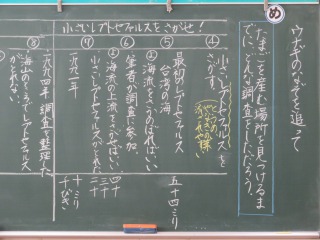 ウナギのなぞを追って
め
たまごを産む場所を見つけるま
でに、どんな調査をしただろう。
小さいレプトセファルスをさがせ！
④
小さいレプトセファルスを
さがす。
⑤
最初のレプトセファルス
台湾の海
海流をさかのぼればいい。
五十四ミリ
⑥
筆者が調査に参加。
海流の上流をさがせばいい。
⑦
小さいレプトセファルスがとれた
四十
三十
二十
一九九一年
十ミリ
千びき
⑧
一九九四年 調査を整理した
海山の
とれない。